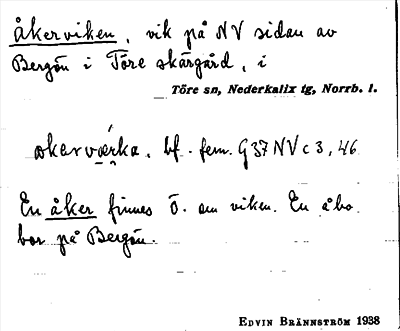 åkerviken, vik på NV sidan av
Bergön i Töre skärgård, i
Töre sn, Nederkalix tg, Norrb. l.
bf. fem. G 37 NV c 3, 46
En åker finnes Ö. om viken. En åbo
bor på Bergön.
EDVIN BRÄNNSTRÖM 1938